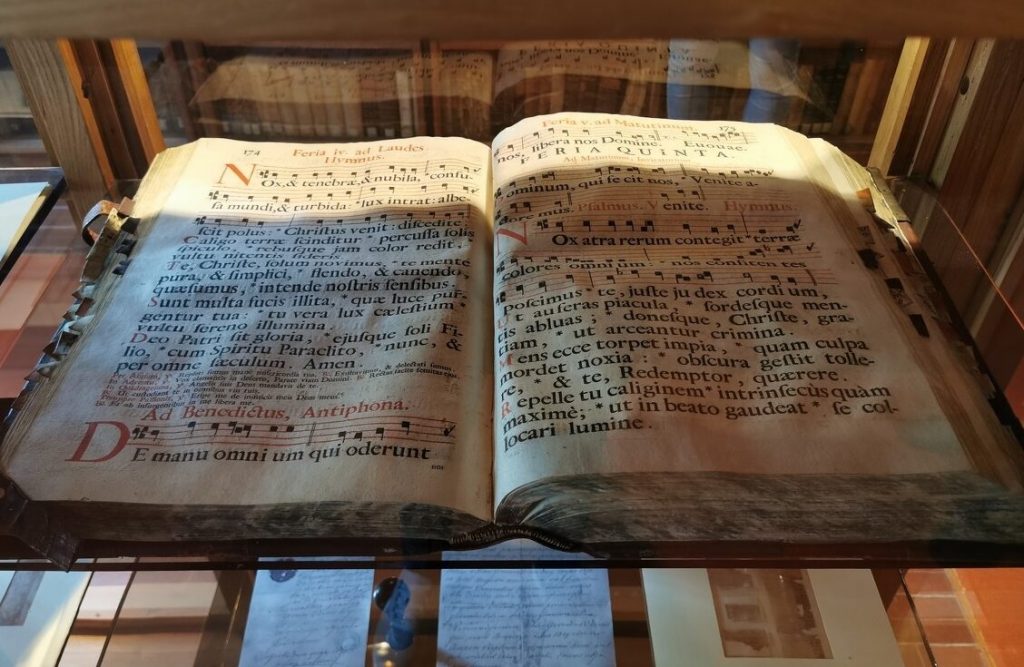 174 Feria iv. ad Laudes.
Hymnus.
NOx,& tenebræ,& nubila, confu-
ſa mundi,& turbida: lux intrat: albe-
ſcit polus: * Chriſtus venit: diſcedite.
Caligo terræ ſcinditur * percuſſa ſolis
ſpiculo, * rebuſque jam color redit,
vultu nitentis ſideris.
Te, Chriſte, ſolum novimus, *te mente
pura, & ſimplici, * flendo, & canendo
quæſumus, *intende noſtris ſenſibus.
Sunt multa fucis illita, *quæ luce pur-
gentur tua: * tu vera lux cæleſtium *
vultu ſereno illumina.
Deo Patri ſit gloria, * ejuſque ſoli Fi-
lio, * cum Spiritu Paraclito, * nunc, &
per omne ſæculum. Amen.
Ad Benedictus, Antiphona.
DE manu omnium qui oderunt
Feria v. ad Matutinum 175
nos, libera nos Domine. Euouae.
FERIA QUINTA.
Ad Matutinum,
Dominum, qui fecit nos, * Venite a-
dore mus. Pſalmus. Venite. Hymnus.
NOx atra rerum contegit * terræ
colores omnium * nos confitentes
poſcimus * te, juſte judex cordium,
Ut auferas piacula, * ſordeſque men-
tis abluas; * doneſque, Chriſte, gra-
tiam, * ut arceantur crimina.
Mens ecce torpet impia, * quam culpa
mordet noxia: * obſcura geſtit tolle-
re, * & te, Redemptor, quærere.
Repelle tu caliginem * intrinſecus quàm
maximè; * ut in beato gaudeat * ſe col-
locari lumine.